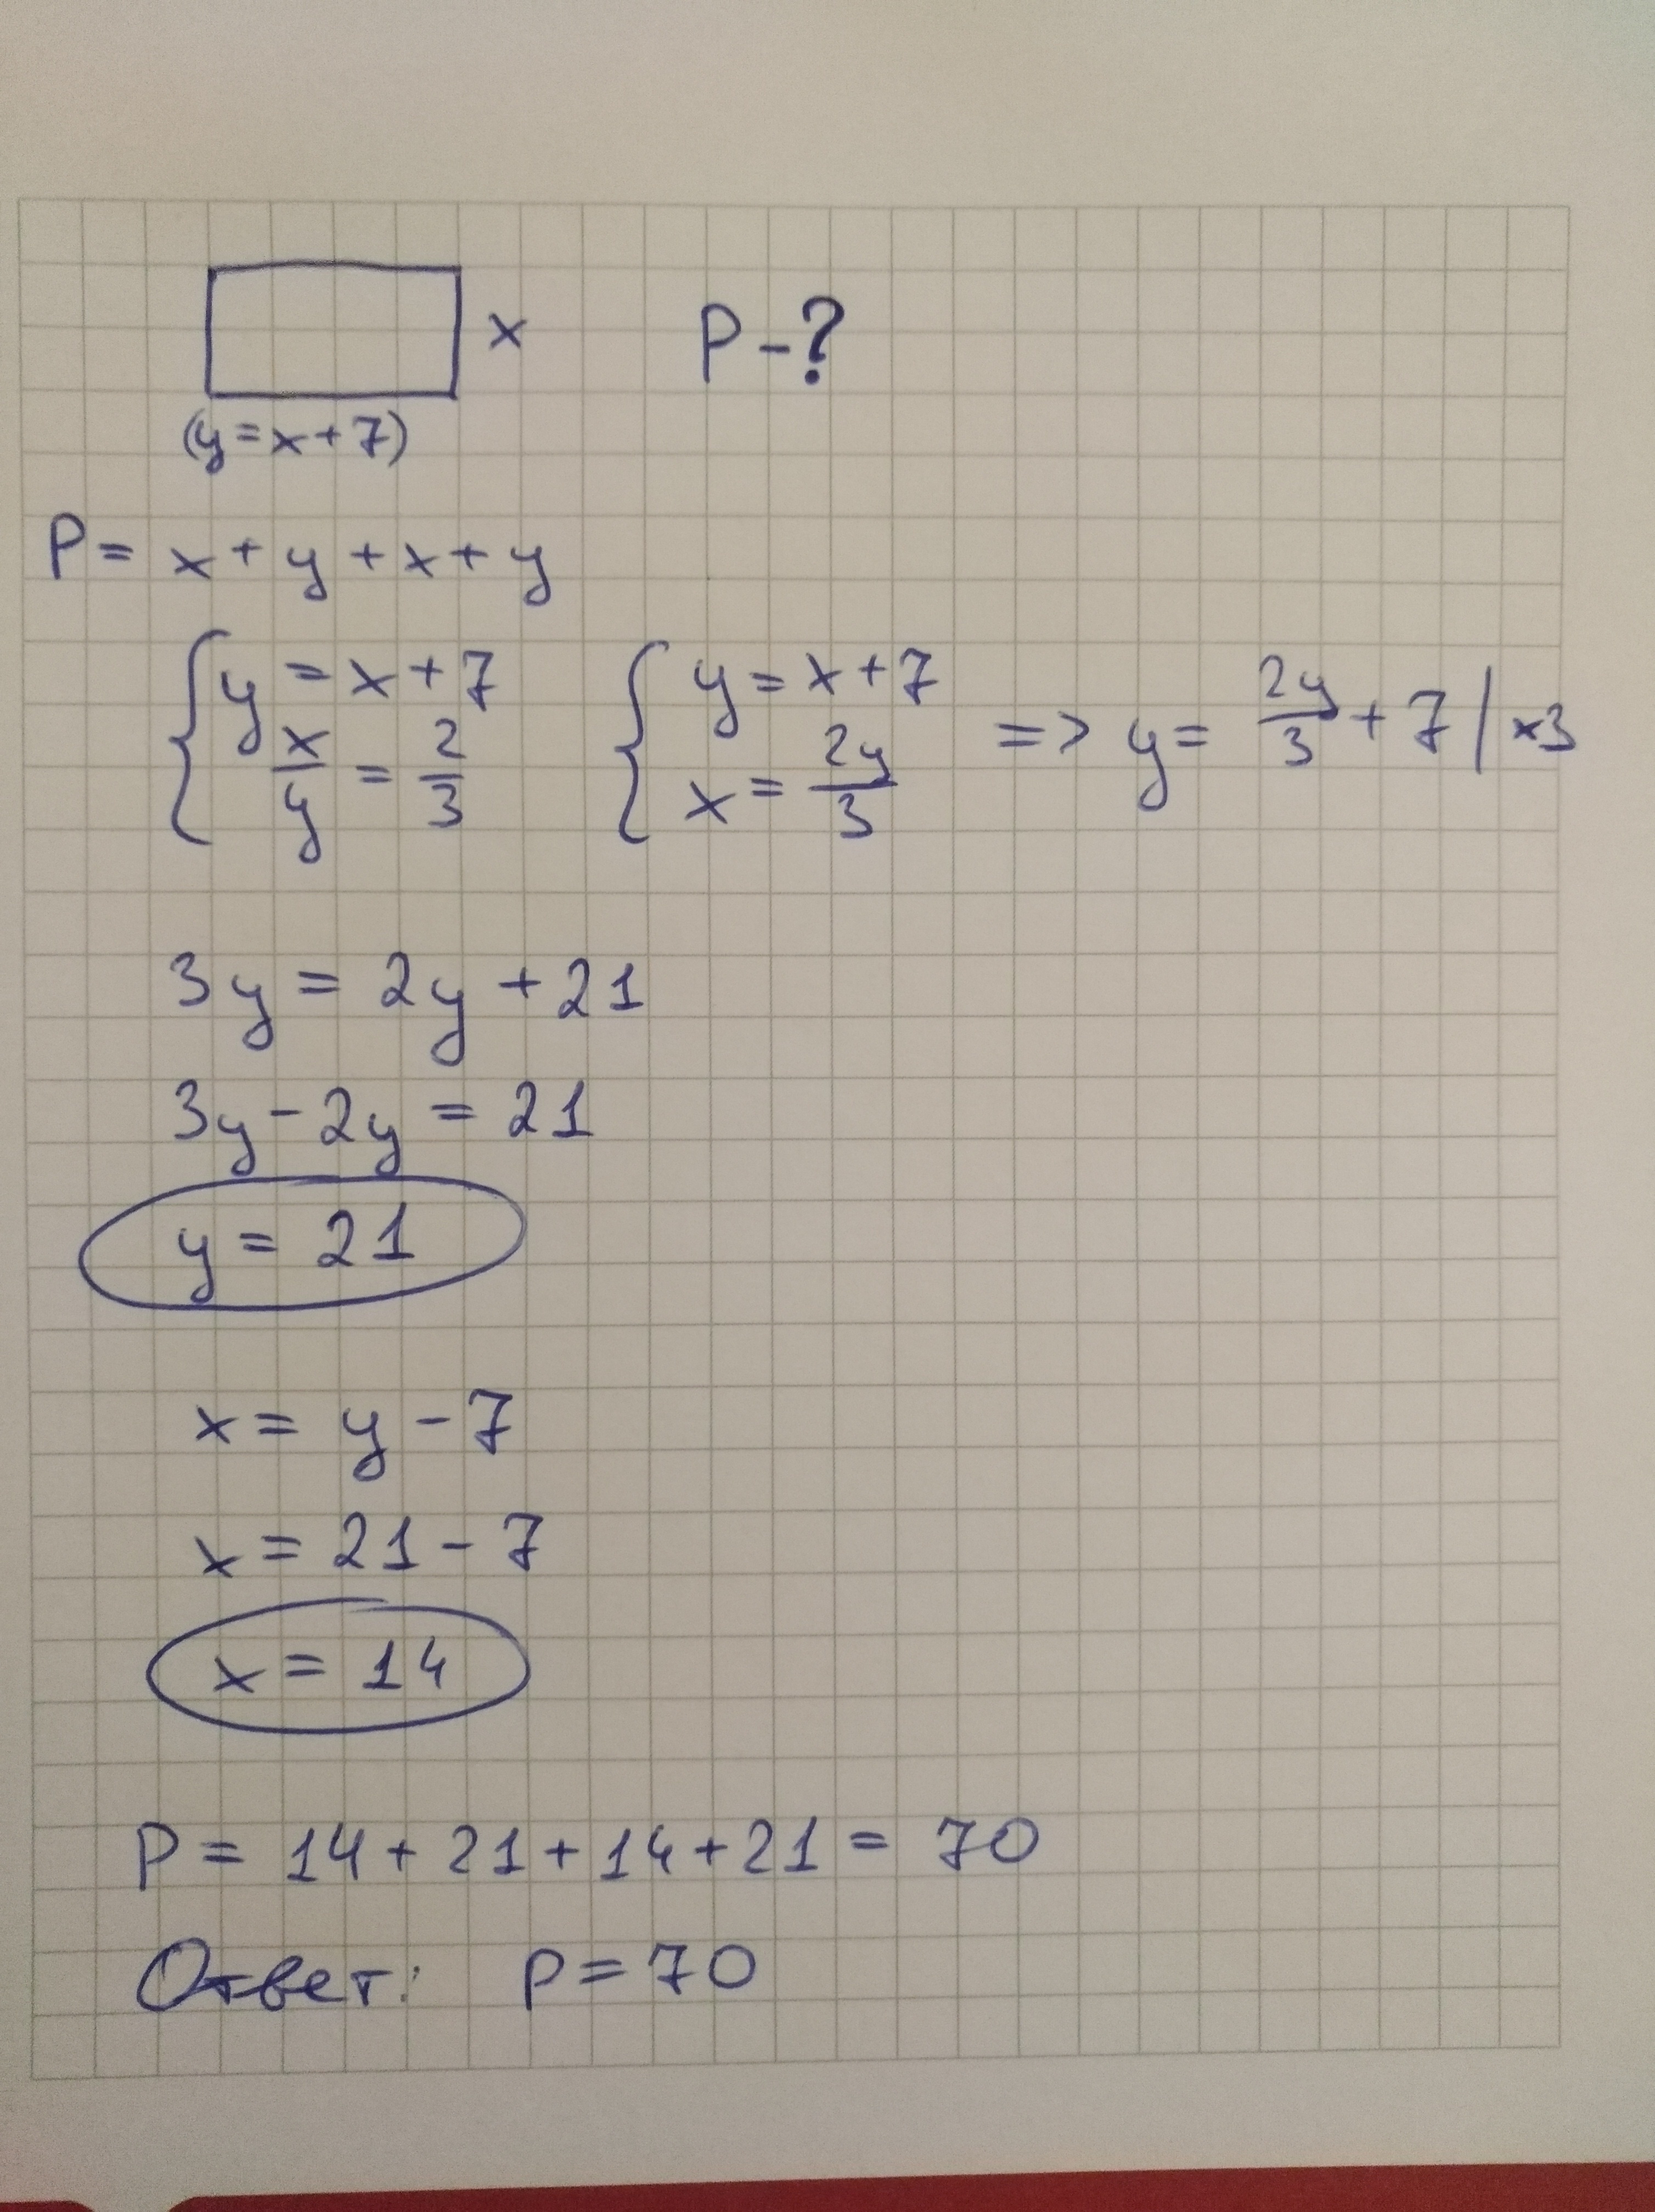 x P-?
(y=x+7)
P= x+y+x+y
{y=x+7 {y=x+7 => y= 2y/3 +7 | ×3
x/y = 2/3 x= 2y/3
3y = 2y +21
3y-2y = 21
y= 21
x= y-7
x= 21-7
x= 14
P= 14+21+14+21= 70
Ответ: P=70